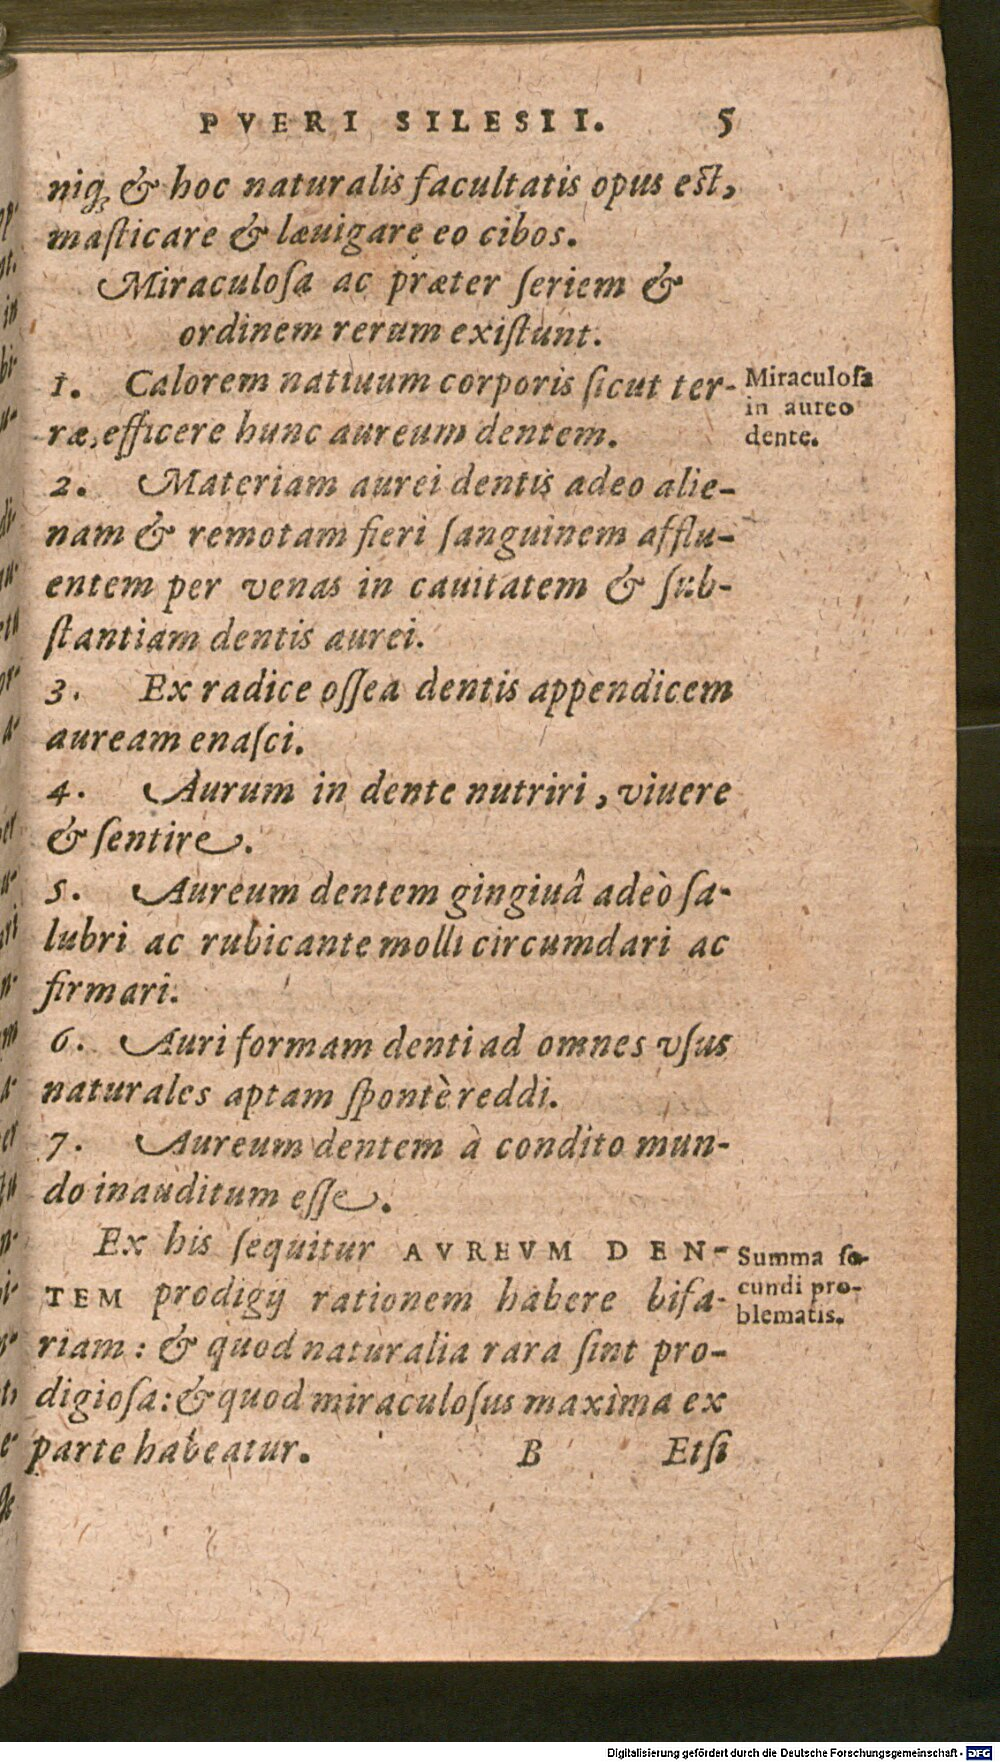 PVERI SILESII. 5
niq; & hoc naturalis facultatis opus est,
maſticare & læuigare eo cibos.
Miraculoſa ac præter ſeriem &
ordinem rerum exiſtunt.
1. Calorem natiuum corporis ſicut ter-
ræ, efficere hunc aureum dentem.
Miraculoſa
in aureo
dente.
2. Materiam aurei dentis adeo alie-
nam & remotam fieri ſanguinem afflu-
entem per venas in cauitatem & ſub-
ſtantiam dentis aurei.
3. Ex radice oſſea dentis appendicem
auream enaſci.
4. Aurum in dente nutriri, viuere
& ſentire.
5. Aureum dentem gingiuâ adeò ſa-
lubri ac rubicante molli circumdari ac
firmari.
6. Auri formam denti ad omnes vſus
naturales aptam ſpontè reddi.
7. Aureum dentem à condito mun-
do inauditum eſſe.
Ex his ſequitur AVREVM DEN-
TEM prodigij rationem habere bifa-
riam: & quod naturalia rara ſint pro-
digioſa: & quod miraculoſus maxima ex
parte habeatur.
Summa ſe-
cundi pro-
blematis.
B Etſi
Digitalisierung gefördert durch die Deutsche Forschungsgemeinschaft - DFG